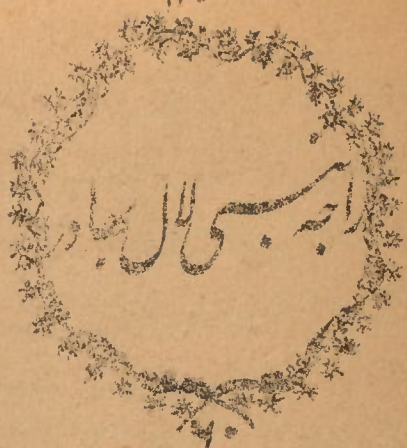 راجہ بنسی لال بہادر